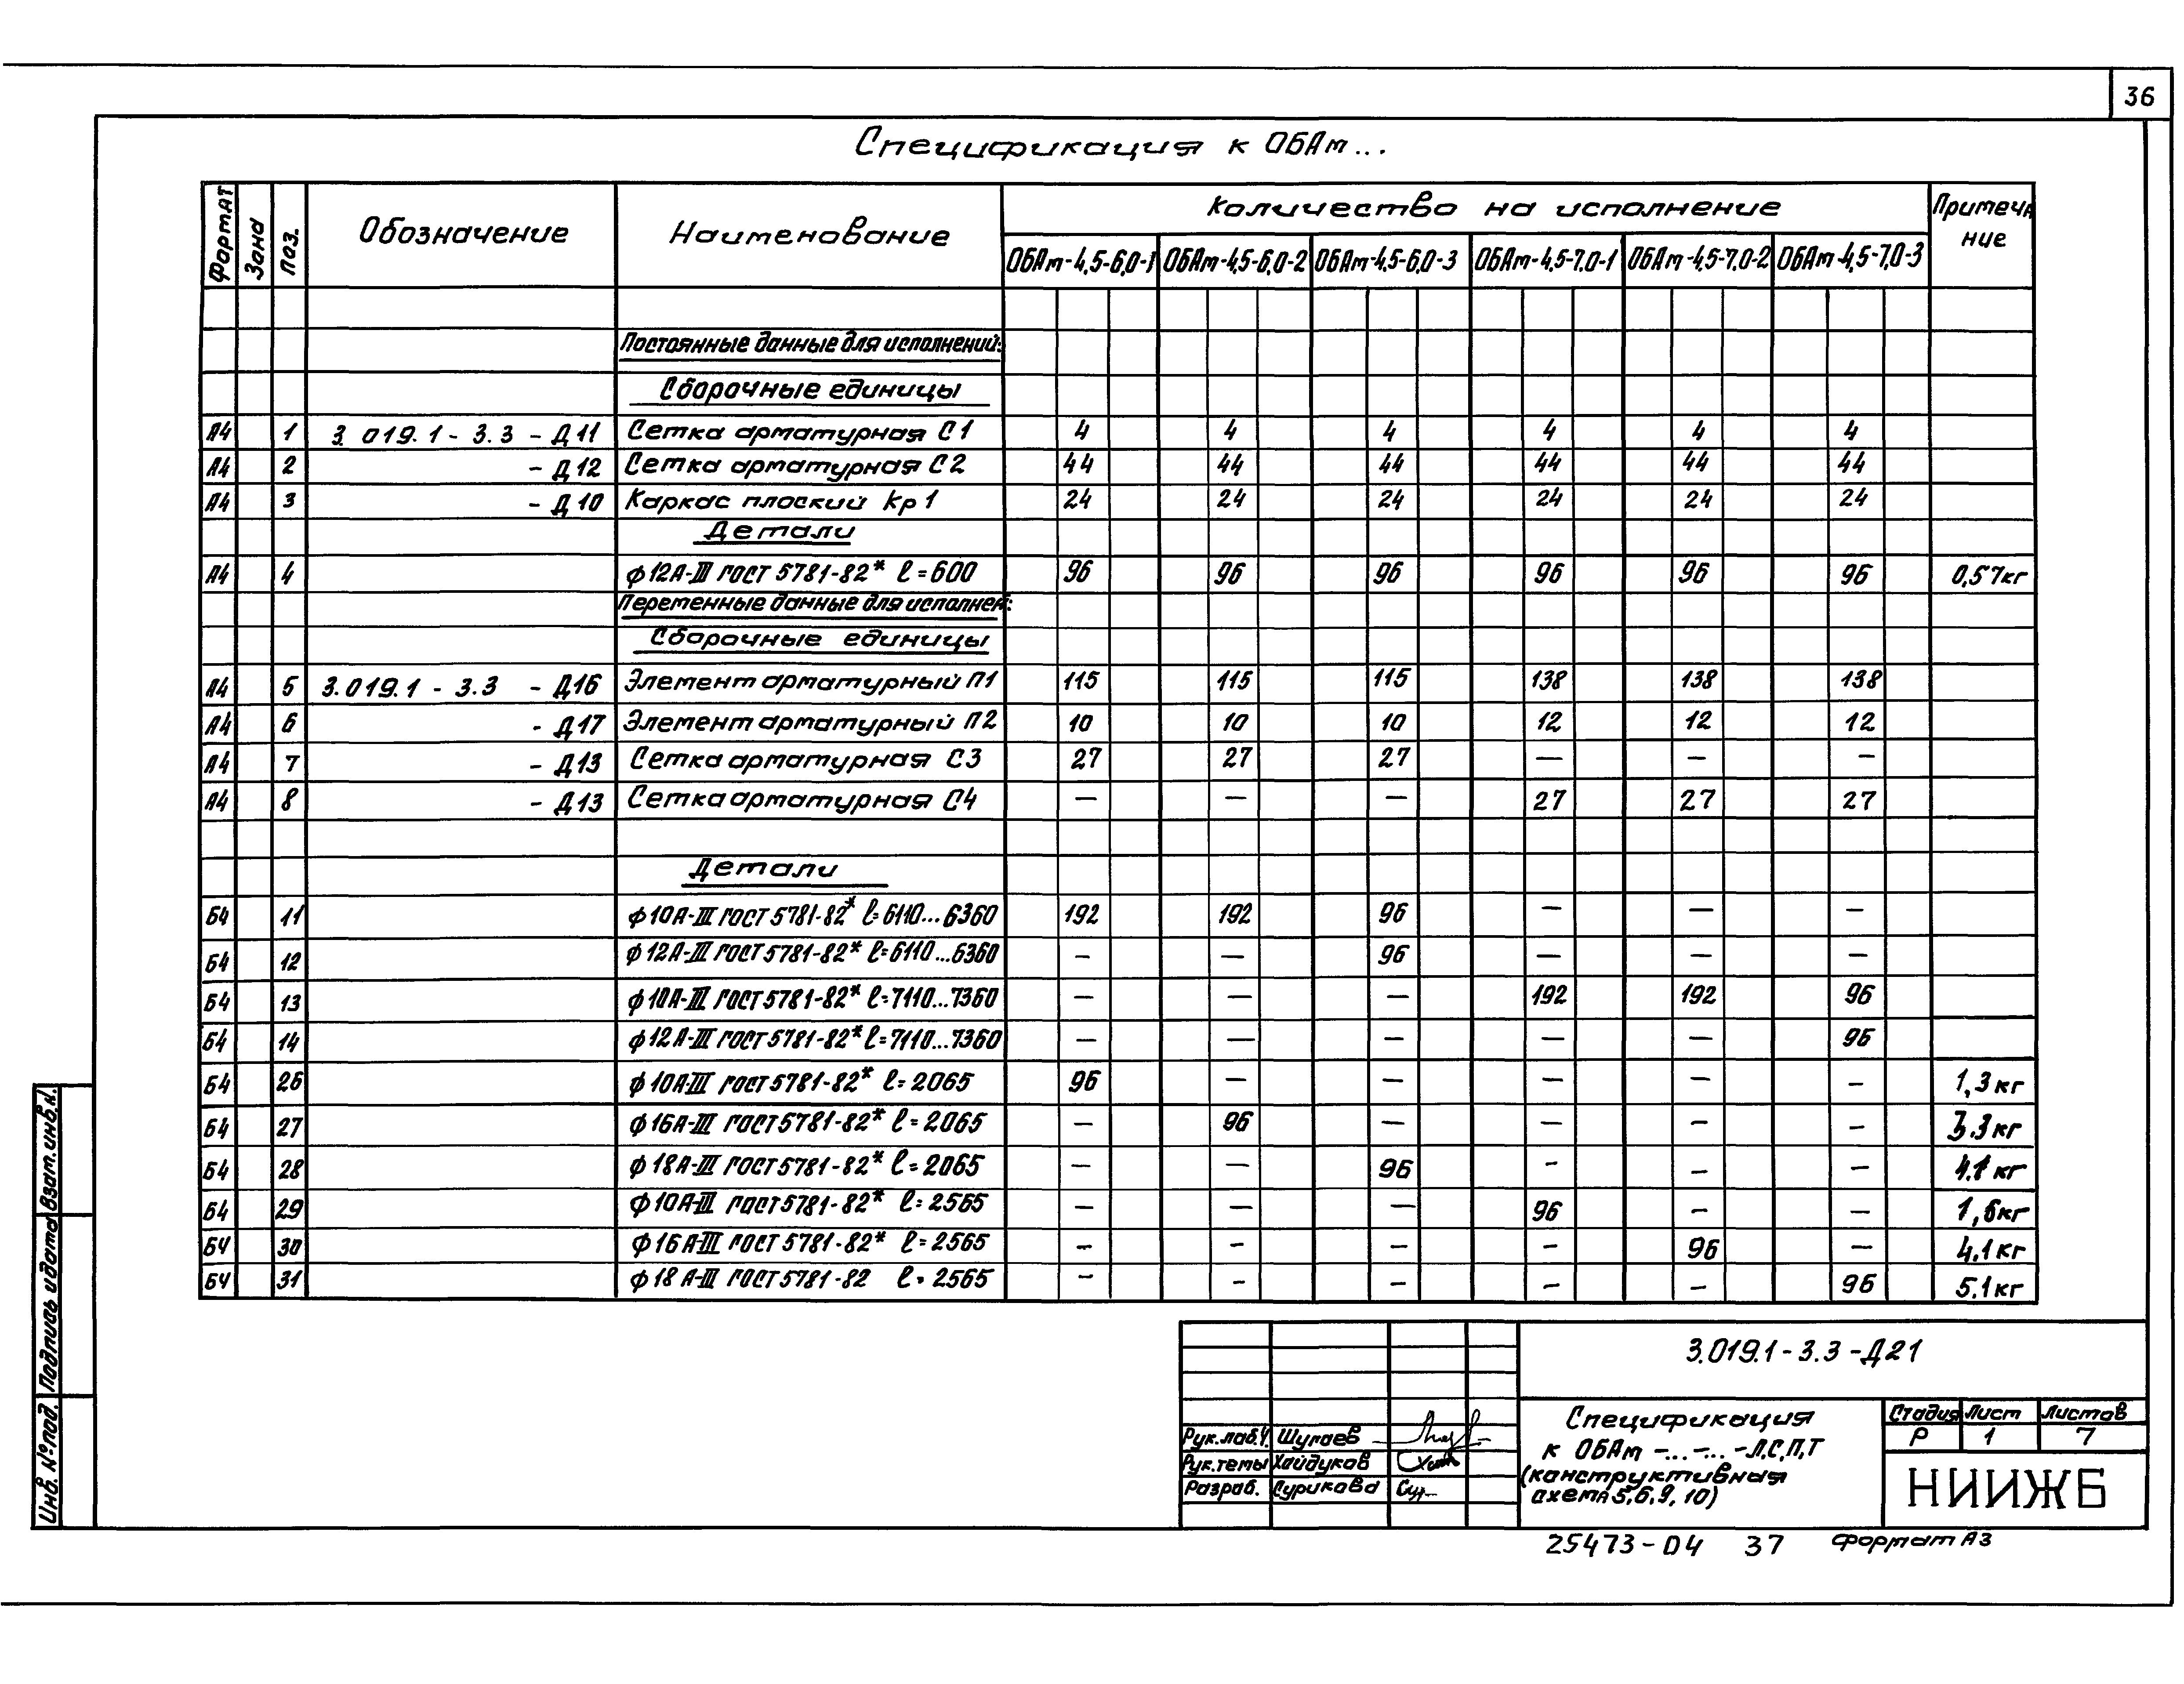 36
Спецификация к ОБАт...
Формат Зона Поз. Обозначение Наименование Количество на исполнение Примеча
ние
ОБАт-4,5-6,0-1 ОБАт-4,5-6,0-2 ОБАт-4,5-6,0-3 ОБАт-4,5-7,0-1 ОБАт-4,5-7,0-2 ОБАт-4,5-7,0-3
Постоянные данные для исполнений:
Сборочные единицы
А4 1 3.019.1-3.3-Д11 Сетка арматурная С1 4 4 4 4 4 4
А4 2 -Д12 Сетка арматурная С2 44 44 44 44 44 44
А4 3 -Д10 Каркас плоский Кр1 24 24 24 24 24 24
Детали
А4 4 ф12А-III ГОСТ 5781-82* ℓ=600 96 96 96 96 96 96 0,57кг
Переменные данные для исполнен:
Сборочные единицы
А4 5 3.019.1-3.3 -Д16 Элемент арматурный П1 115 115 115 138 138 138
А4 6 -Д17 Элемент арматурный П2 10 10 10 12 12 12
А4 7 -Д13 Сетка арматурная С3 27 27 27 — — —
А4 8 -Д13 Сетка арматурная С4 — — — 27 27 27
Детали
Б4 11 ф10А-III ГОСТ 5781-82* ℓ=6110...6360 192 192 96 — — —
Б4 12 ф12А-III ГОСТ 5781-82* ℓ=6110...6360 — — 96 — — —
Б4 13 ф10А-III ГОСТ 5781-82* ℓ=7110...7360 — — — 192 192 96
Б4 14 ф12А-III ГОСТ 5781-82* ℓ=7110...7360 — — — — — 96
Б4 26 ф10А-III ГОСТ 5781-82* ℓ=2065 96 — — — — — 1,3кг
Б4 27 ф16А-III ГОСТ 5781-82* ℓ=2065 — 96 — — — — 3.3кг
Б4 28 ф18А-III ГОСТ 5781-82* ℓ=2065 — — 96 — — — кг
Б4 29 ф10А-III ГОСТ 5781-82* ℓ=2565 — — — 96 — — 1,6кг
Б4 30 ф16А-III ГОСТ 5781-82* ℓ=2565 — — — — 96 — 4.1кг
Б4 31 ф18А-III ГОСТ 5781-82 ℓ=2565 — — — — — 96 5.1кг
Взам.инв.№
Подпись и дата
Инв. № под.
3.019.1-3.3-Д21
Рук.лаб. Шугаев
Рук.темы Хайдуков
Разраб. Сурикова
Спецификация
к ОБАт -...-...-Л,С,П,Т
(конструктивная
схема 5,6,9,10)
Стадия Лист Листов
Р 1 7
НИИЖБ
25473-04 37 Формат А3